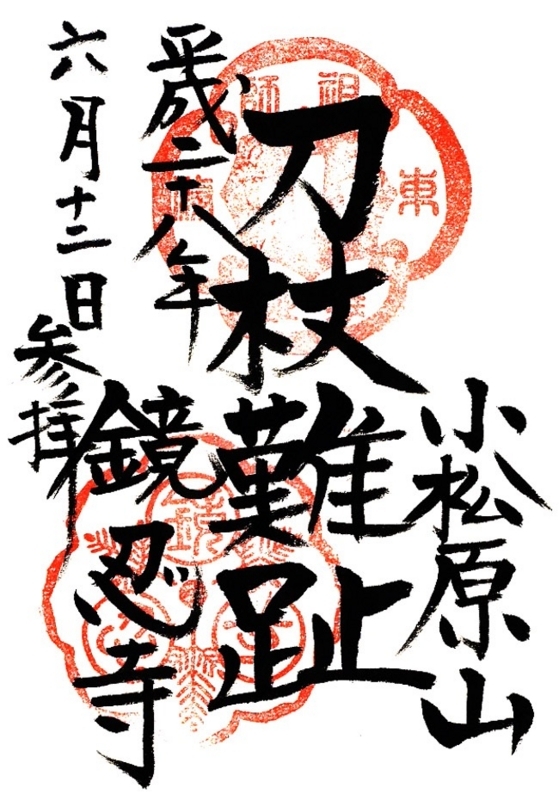 小松原山
刀杖難趾
鏡忍寺
平成二十八年
六月十二日
参拝